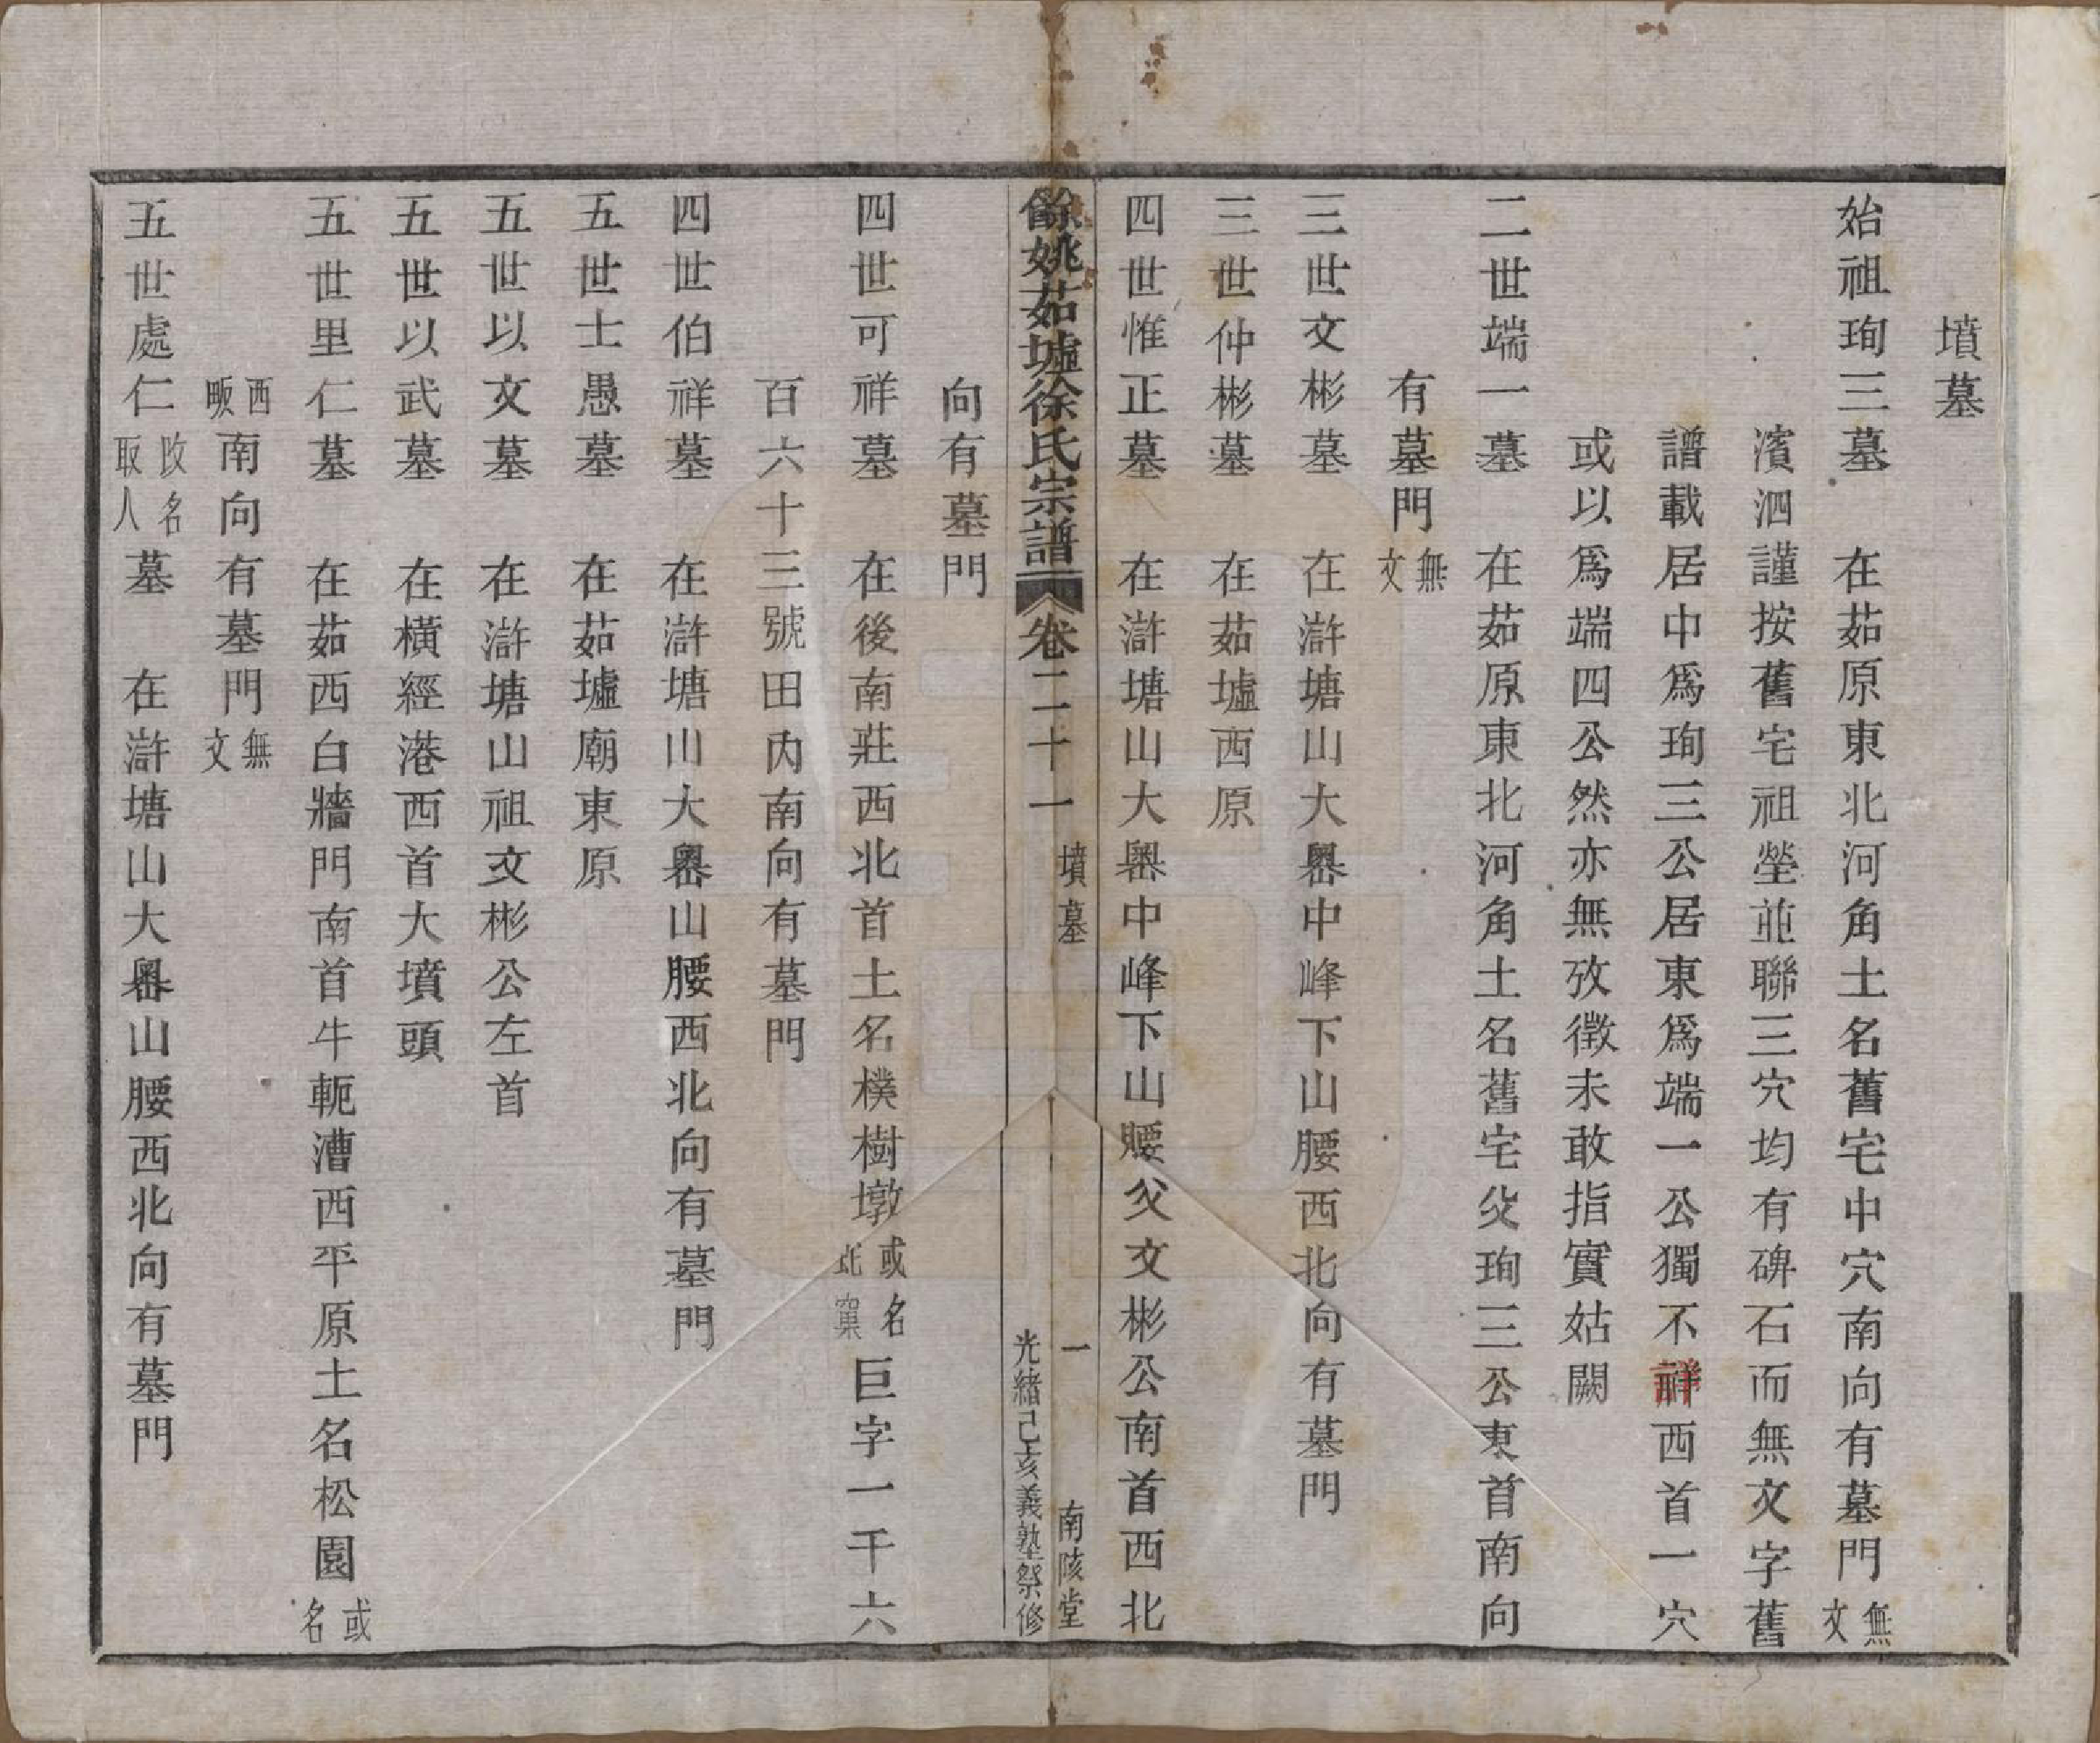 墳墓
始祖珣三墓　在茹原東北河角土名舊宅中穴南向有墓門無文
濱泗謹按舊宅祖塋並聯三穴均有碑石而無文字舊
譜載居中爲珣三公居東爲端一公獨不詳西首一穴
或以爲端四公然亦無攷徴未敢指實姑闕
二世端一墓　在茹原東北河角土名舊宅父珣三公東首南向
有墓門無文
三世文彬墓　在滸塘山大嶴中峰下山腰西北向有墓門
三世仲彬墓　在茹墟西原
四世惟正墓　在滸塘山大嶴中峰下山腰父文彬公南首西北
餘姚茹墟徐氏宗譜　卷二十一　墳墓　一　南陔堂　光緒己亥義塾祭修
向有墓門
四世可祥墓　在後南莊西北首土名樸樹墩或名北窠巨字一千六
百六十三號田內南向有墓門
四世伯祥墓　在滸塘山大嶴山腰西北向有墓門
五世士愚墓　在茹墟廟東原
五世以文墓　在滸塘山祖文彬公左首
五世以武墓　在橫經港西首大墳頭
五世里仁墓　在茹西白牆門南首牛軛漕西平原土名松園或名
西畈南向有墓門無文
五世處仁改名取人墓　在滸塘山大嶴山腰西北向有墓門